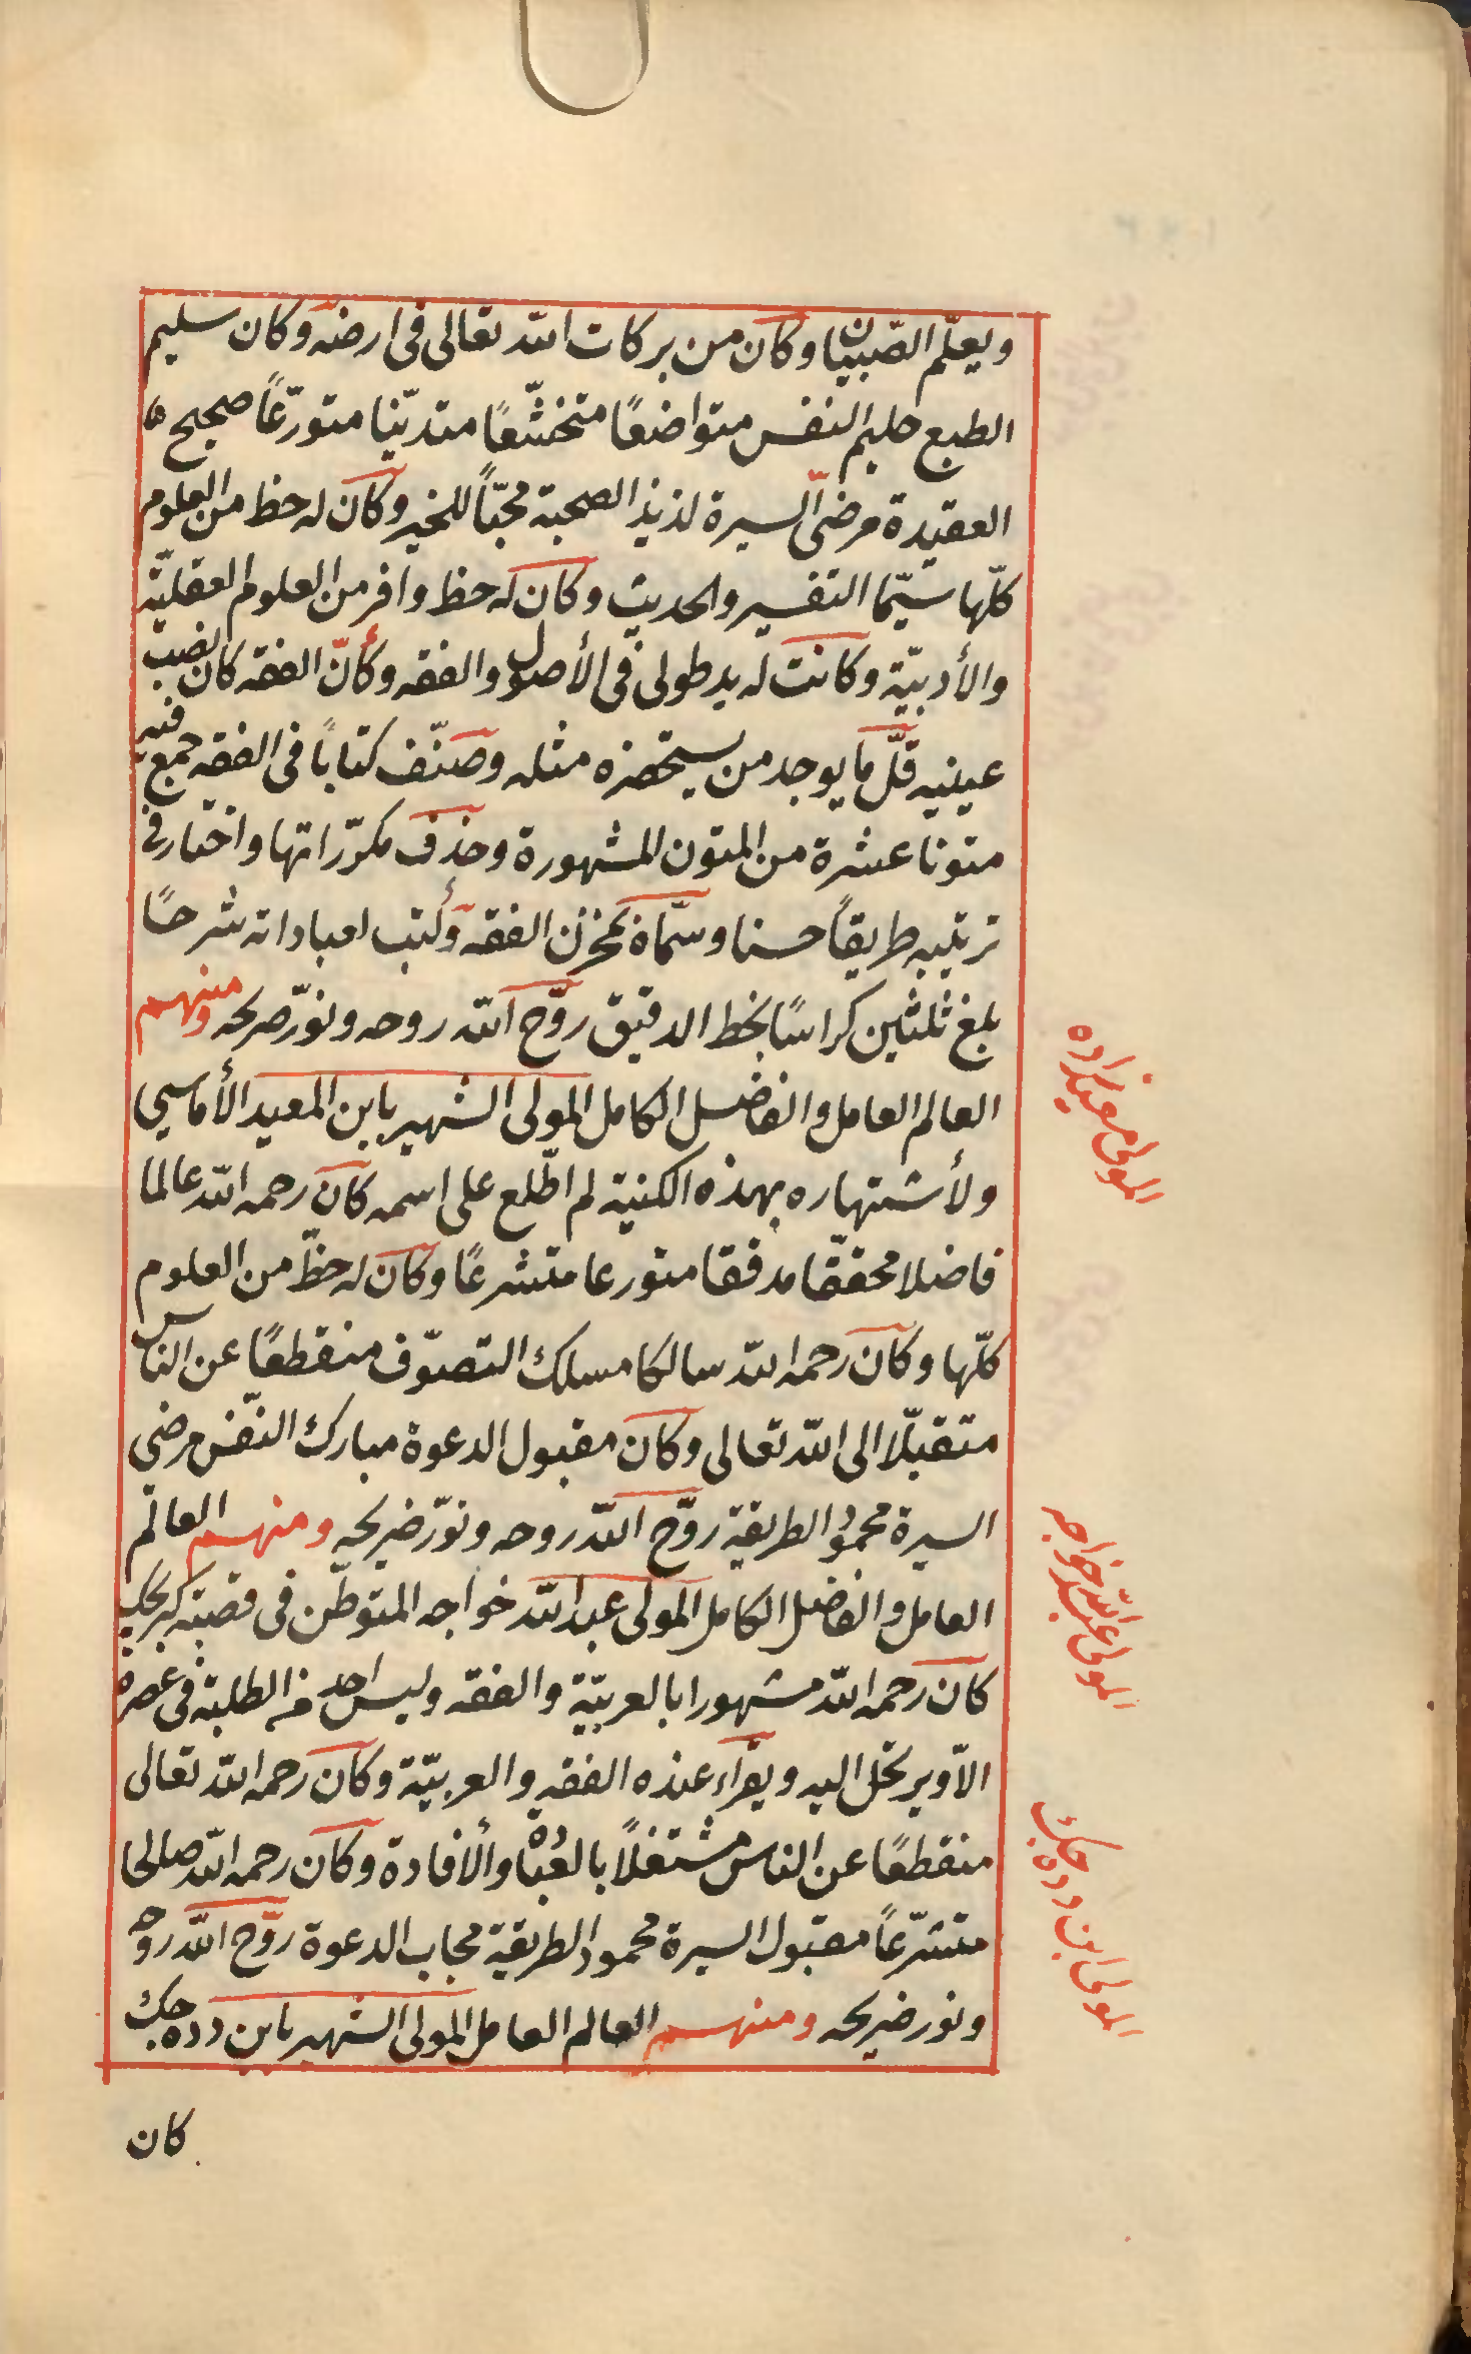 ويعلّم الصّبيان وكان من بركات الله تعالى فى ارضه وكان سليم
الطبع حليم النفس متواضعًا متخشّعًا متديّنا متورّعًا صحيح
العقيدة مرضىّ السيرة لذيذ الصحبة محبّاً للخير وكان له حظ من العلوم
كلّها سيّما التفسير والحديث وكان له حظ وافر من العلوم العقليّة
والأدبيّة وكانت له يد طولى فى الأصول والفقه وكأنّ الفقه كان نصب
عينيه قلّ ما يوجد من يستحضره مثله وصنّف كتابًا فى الفقه جمع فيه
متونا عشرة من المتون المشهورة وحذف مكرّراتها واختار فى
ترتيبه طريقاً حسنا وسمّاه بمخزن الفقه وكتب لعباداته شرحًا
بلغ ثلثين كراسًا بخط الدقيق روّح الله روحه ونوّر ضريحه ومنهم
العالم العامل والفاضل الكامل المولى الشهير بابن المعيد الأماسي
ولأشتهاره بهذه الكنية لم اطّلع على اسمه كان رحمه الله عالما
فاضلا محققّا مدققا متورعا متشرعًا وكان له حظّ من العلوم
كلّها وكان رحمه الله سالكا مسلك التصوّف منقطعًا عن الناس
متقبّلا الى الله تعالى وكان مقبول الدعوة مبارك النّفس مرضى
السيرة محمود الطريقة روّح الله روحه ونوّر ضريحه ومنهم العالم
العامل والفاضل الكامل المولى عبد الله خواجه المتوطّن فى قصبة
كان رحمه الله مشهورا بالعربيّة والفقه وليس احد من الطلبة فى عصره
الاّ ويرتحل اليه ويقراء عنده الفقه والعربيّة وكان رحمه الله تعالى
منقطعًا عن الناس مشتغلاً بالعبادة والأفادة وكان رحمه الله صالحا
متشرّعاً مقبول السيرة محمود الطريقة مجاب الدعوة روّح الله روحه
ونور ضريحه ومنهم العالم العامل المولى الشهير بابن دده جك
كان
المولى معيد زاده
المولى عبد الله خواجه
المولى ابن دده جك